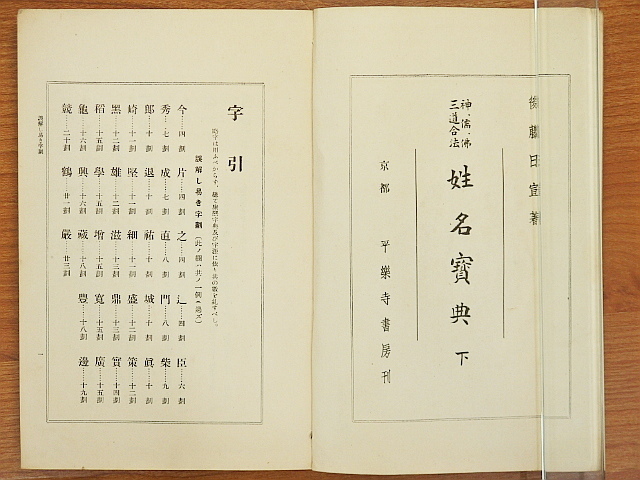 後藤日宣著
神、儒、佛
三道合法
姓名寶典 下
京都 平樂寺書房刊
字引
誤解し易き字劃 (此ノ欄ハ共ノ一例ヲ擧グ)
今……四劃 片……四劃 之……四劃 辶……四劃 臣……六劃
秀……七劃 成……七劃 直……八劃 門……八劃 柴……九劃
郎……十劃 退……十劃 祐……十劃 城……十劃 眞……十劃
崎……十一劃 堅……十一劃 細……十一劃 盛……十二劃 策……十二劃
黑……十二劃 雄……十二劃 滋……十三劃 鼎……十三劃 實……十四劃
稻……十五劃 學……十五劃 增……十五劃 寬……十五劃 廣……十五劃
龜……十六劃 興……十六劃 藏……十八劃 豐……十八劃 邊……十九劃
競……二十劃 鶴……廿一劃 嚴……廿三劃
誤解し易き字劃
一